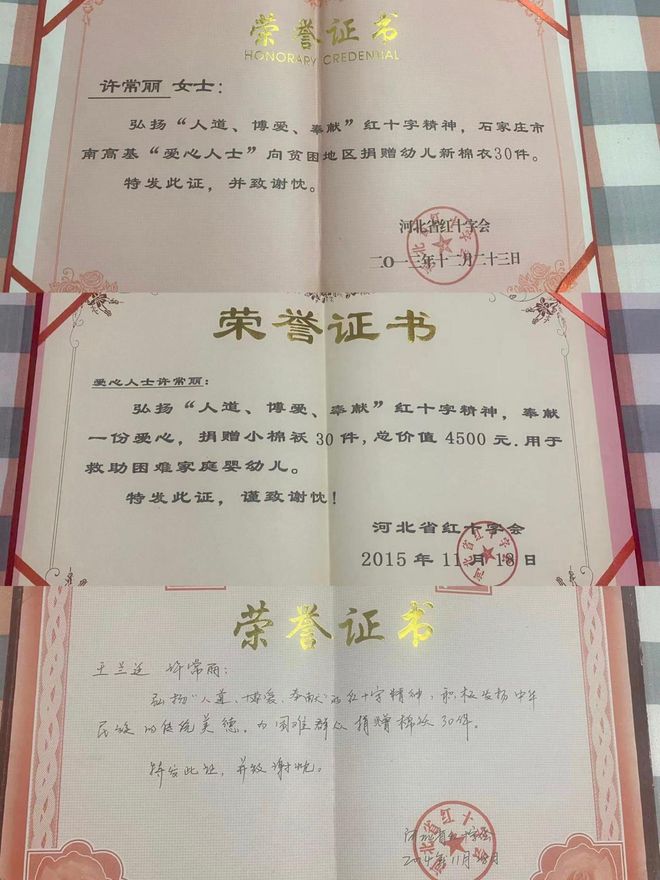 荣誉证书
HONORARY CREDENTIAL
许常丽 女士：
弘扬“人道、博爱、奉献”红十字精神，石家庄市
南高基“爱心人士”向贫困地区捐赠幼儿新棉衣30件。
特发此证，并致谢忱。
河北省红十字会
二〇一三年十二月二十三日
荣誉证书
爱心人士许常丽：
弘扬“人道、博爱、奉献”红十字精神，奉献
一份爱心，捐赠小棉袄30件，总价值4500元.用于
救助困难家庭婴幼儿。
特发此证，谨致谢忱！
河北省红十字会
2015年11月18日
荣誉证书
王兰 许常丽：
弘扬“人道、博爱、奉献”的红十字精神，积极发扬中华
民族的传统美德，为困难群众捐赠棉袄30件。
特发此证，并致谢忱。
河北省红十字会
2014年11月18日